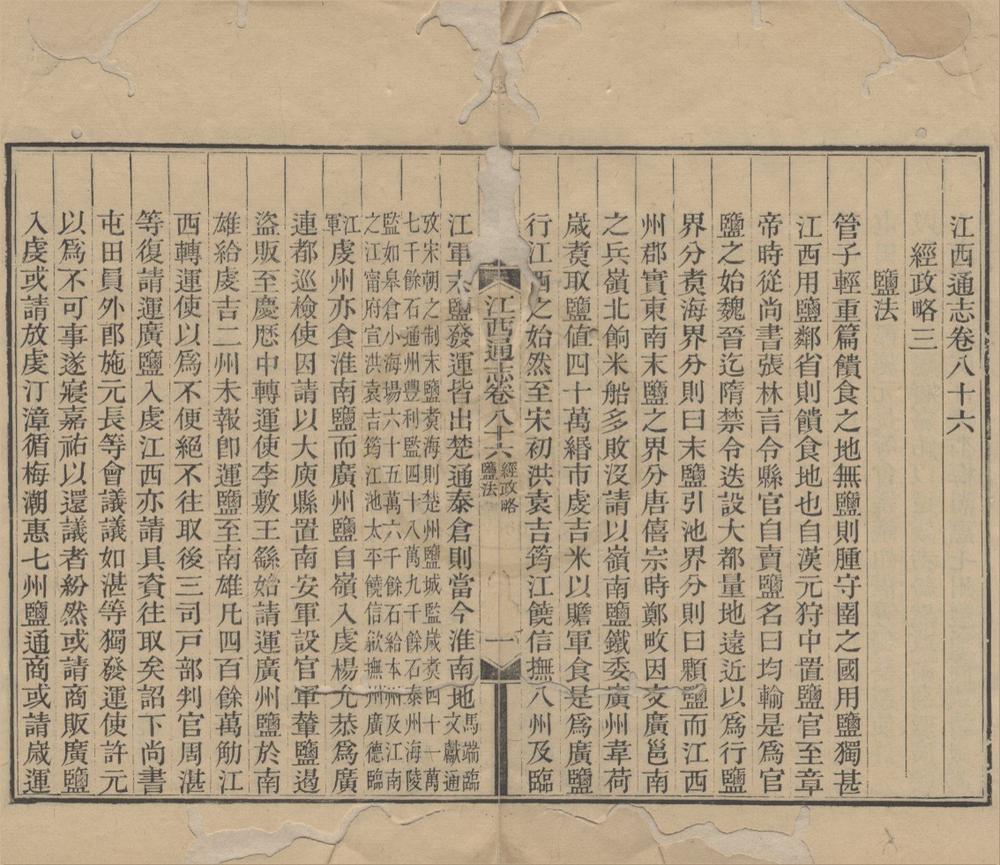 江西通志卷八十六
經政略三
鹽法
管子輕重篇饋食之地無鹽則腫守圉之國用鹽獨甚
江西用鹽鄰省則饋食地也自漢元狩中置鹽官至章
帝時從尚書張林言令縣官自賣鹽名曰均輸是爲官
鹽之始魏晉迄隋禁令迭設大都量地遠近以爲行鹽
界分煑海界分則曰末鹽引池界分則曰顆鹽而江西
州郡實東南末鹽之界分唐僖宗時鄭畋因交廣邕南
之兵嶺北餉米船多敗沒請以嶺南鹽鐵委廣州韋荷
歲煑取鹽值四十萬緡市虔吉米以贍軍食是爲廣鹽
行江西之始然至宋初洪袁吉筠江饒信撫八州及臨
江西通志卷八十六
經政略
鹽法
一
江軍末鹽發運皆出楚通泰倉則當今淮南地
馬端臨
文獻通
攷宋朝之制末鹽煑海則楚州鹽城監歲煑四十一萬
七千餘石通州豐利監四十八萬九千餘石泰州海陵
監如皋倉小海場六十五萬六千餘石給本州及江南
之江甯府宣洪袁吉筠江池太平饒信歙撫州廣德臨
江
軍
虔州亦食淮南鹽而廣州鹽自嶺入虔楊允恭爲廣
連都巡檢使因請以大庾縣置南安軍設官軍輦鹽過
盜販至慶厯中轉運使李敷王繇始請運廣州鹽於南
雄給虔吉二州未報卽運鹽至南雄凡四百餘萬觔江
西轉運使以爲不便絕不往取後三司戸部判官周湛
等復請運廣鹽入虔江西亦請具資往取矣詔下尚書
屯田員外郎施元長等會議議如湛等獨發運使許元
以爲不可事遂寢嘉祐以還議者紛然或請商販廣鹽
入虔或請放虔汀漳循梅潮惠七州鹽通商或請歲運